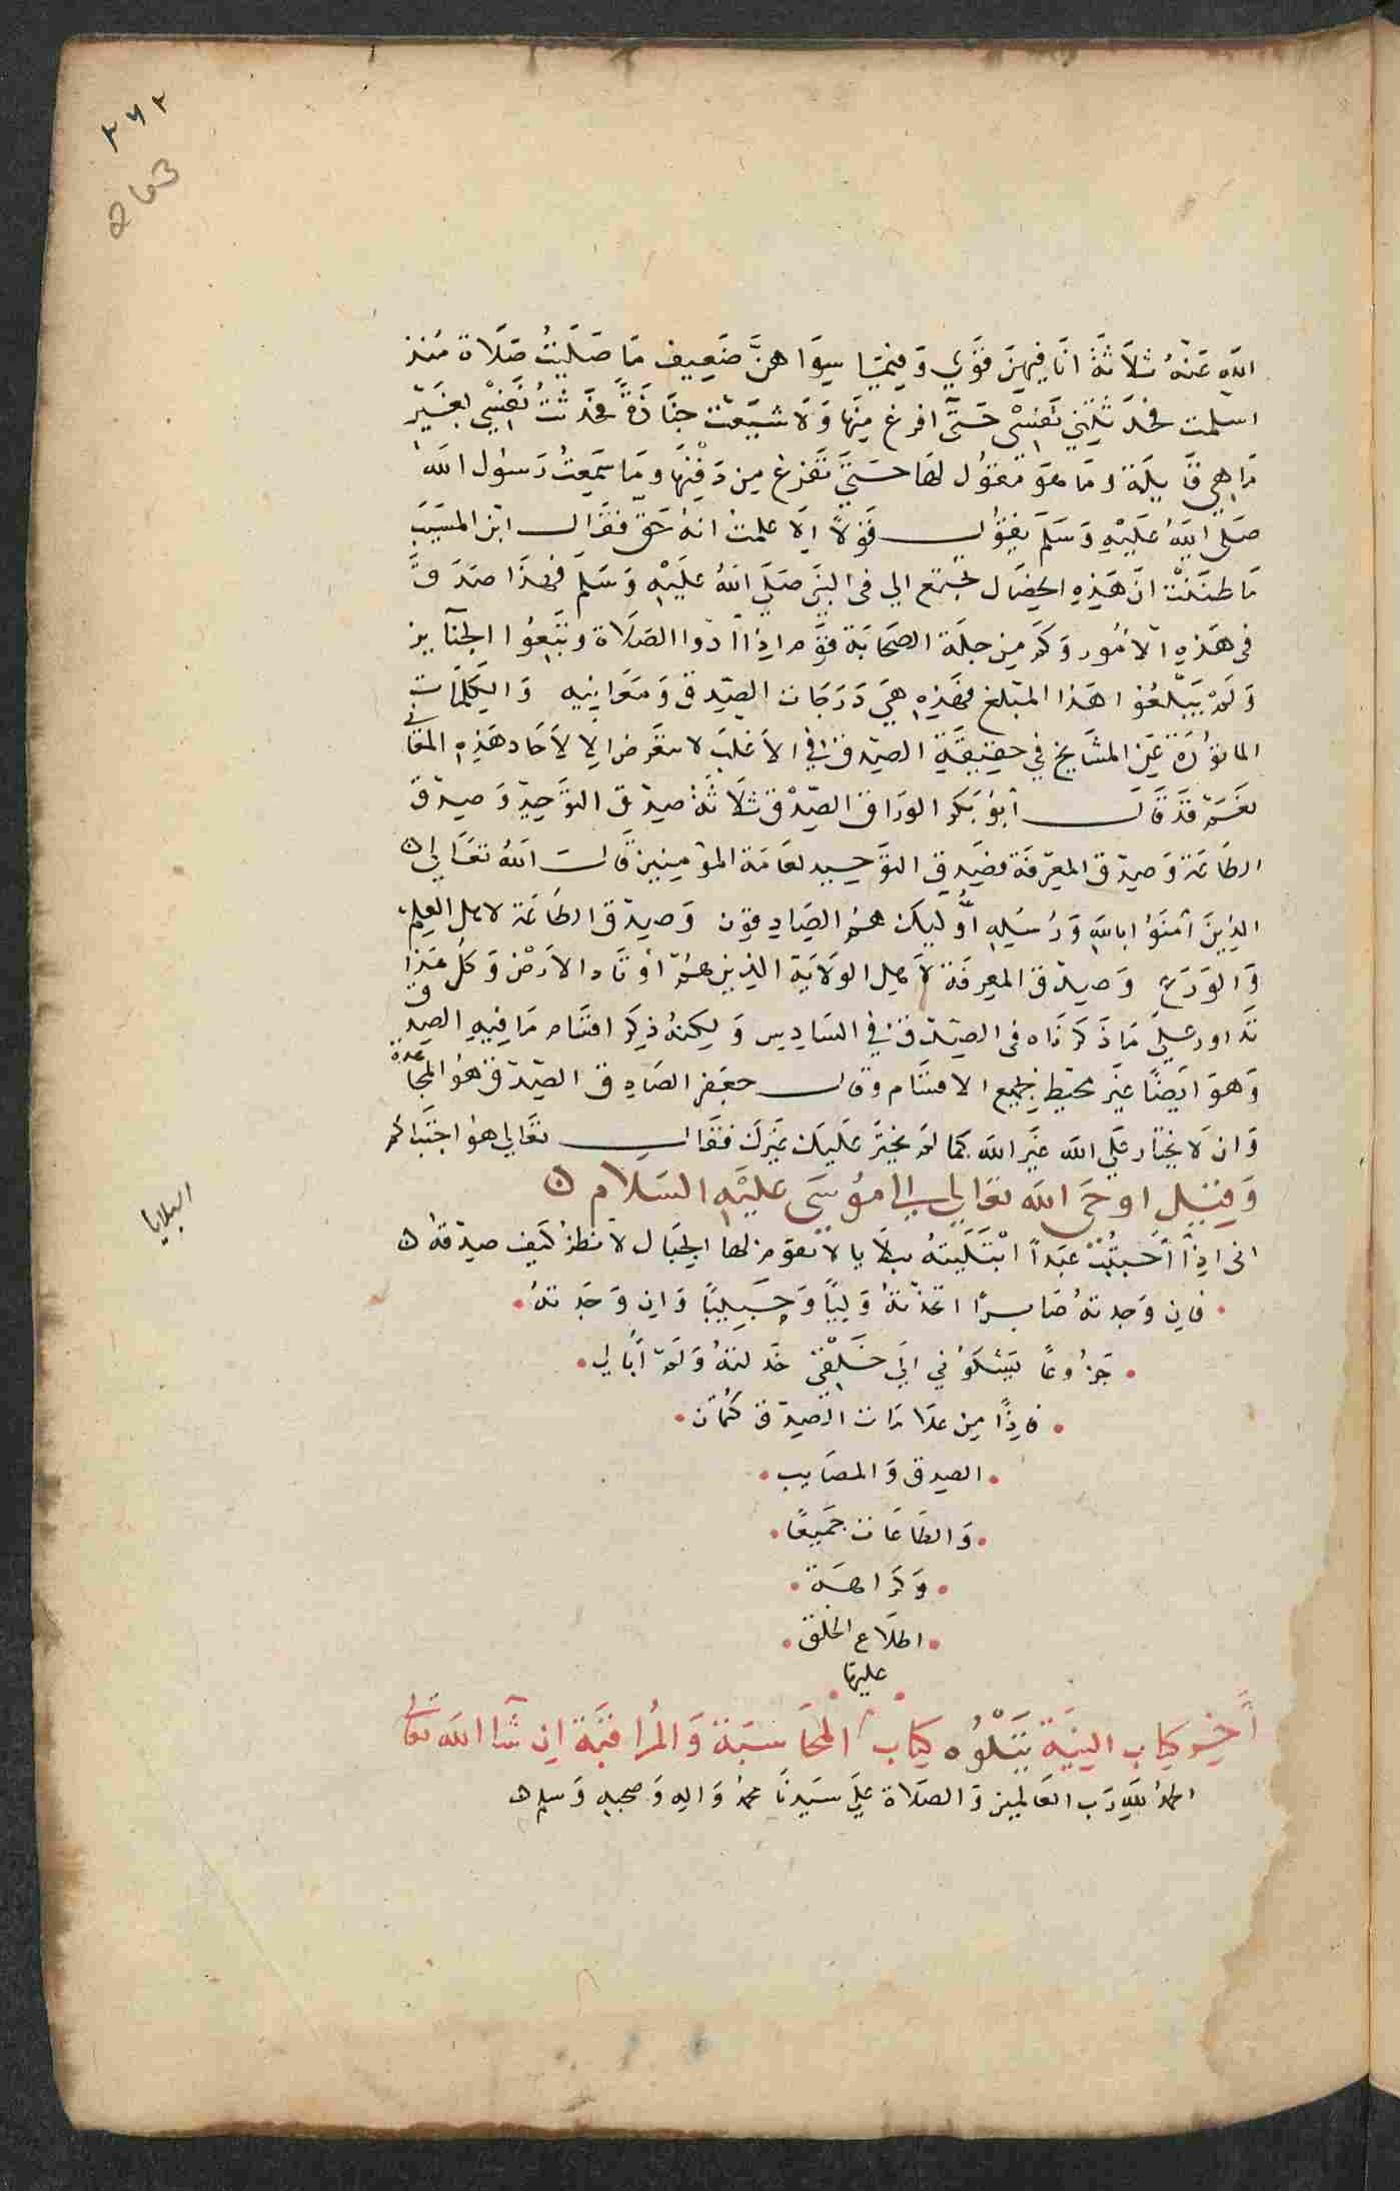 ٢٦٢
263
الله عَنْهُ ثلاَثَة انَا فِيهِنَ قَوَي وَفِيمَا سِوَا هنَّ ضَعِيف مَا صَلَيتُ صَلاَة مُنذ
اسلمت فحَدَثتني نَفسِيْ حَتَّي افرغ مِنهَا وَلا شيَعَت جنَازَةً فحَدثتُ نَفسِيْ بغَيرْ
مَا هِي قَايلَة وَمَا هَوَ مَقوُل لهَا حَتيَّ نَفرغ مِن دَفنِهَا وَمَا سَمِعتُ رَسوُل الله
صَلي اللهُ عَلَيْهِ وَسَلم يقوُل قَولاً إلا علمتُ انهُ حَق فقَال ابن المسَيَبَ
مَا ظنَنتْ انَ هَذِهِ الخِصَال تجتمَع الي في النَبي صَلَي اللهُ عَلَيْهِ وَسَلم فهذَا صِدَق
في هَذِهِ الأمُور وَكَم مِن جلَة الصَحابَة قوَم اذِا ادّوا الصَلاَة وَتبَعِوُا الجنَايز
وَلمْ يَبْلغُوا هَذا المبَلغ فهَذِهِ هِيَ دَرَجَات الصِدق وَمَعَانِيهِ وَالكَلمَات
الماثوُرَة عَن المشَايخ في حقيقَةِ الصِدق في الأغلبَ لا تتعَرض الِا لآحَاد هَذِهِ المعَاني
نعَمَ قدَ قَال أبوُ بَكر الورَاق الصِدْق ثَلاَثَةُ صِدق التوَحِيدْ وَصِدق
الطَاعَة وَصِدق المعَرفَة فصِدَق التوَحِيد لعَامَة المؤمِنِين قَال اللهُ تعَالي ه
الذِينَ آمنوُا باللهِ وَرُسُلِهِ أوُليِكَ هُمُ الصَادِقوِن وَصِدق الطَاعَة لاهل العِلم
وَالوَرَعِ وَصِدق المعِرفَة لأهِل الوِلاَيَة الذِين هُمْ اوْتَاد الأرَضْ وَكلُ هَذا
يَدور علي مَا ذَكرنَاه في الصِدق في السَادِس وَلكِنهُ ذِكَر اقسَام مَا فِيهِ الصِدق
وَهوَ ايَضًا غيَر محيَط بجميع الاقسَام وَقال جعَفر الصَادِق الصِدق هوُ المجَاهدَة
وَان لا يختَار عَلي الله غيَر الله كمَا لم يختَر عَليكَ غيَرك فقَال تعَالي هوُ اجتَباكم
وَقِيل اوحَي الله تعَالي الي موُسَي عليَهِ السَلام ه
اني اذِا أحَببُتْ عَبدًا ابْتَلَيتهُ ببلاَيا لا تقومُ لها الجِبَال لا نظرُ كَيف صِدقهُ ه
فَان وَجدتهُ صَابرًا اتخذتهُ وَليًا وَحَبِيبًا وَان وَجَدتهُ
جَزوُعًا يَشكوُني اليَ خَلْقي خَذلتهُ وَلم اُبَالي
فَاذًِا مِن علاَمَات الصِدق كتمَان
الصدق وَالمصَايب
وَالطاعَات جَميعًا
وَكرَاهَة
اطلاَع الخلق
عليهَا
آخِر كِتاب النِيَةِ يَتْلوُه كِتاب المحَاسَبَة وَالمُراقبَة ان شَا الله تعَالي
الحمدُ للهِ رَب العَالمِين وَالصَلاة عَلي سَيدنَا محمد وَالِه وَصحبهِ وَسلم ه
البلايا